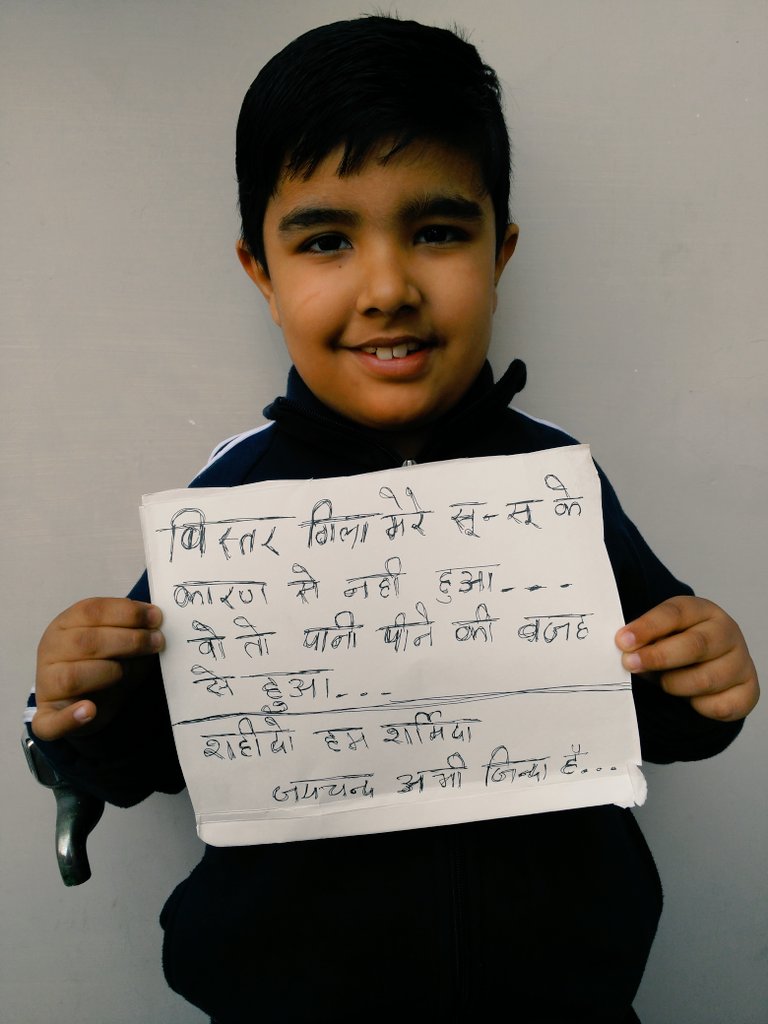 बिस्तर गिला मेरे सू-सू के
कारण से नही हुआ...
वो तो पानी पीने की वजह
से हुआ...
शहीदो हम शर्मिदा
जयचन्द अभी जिन्दा है...